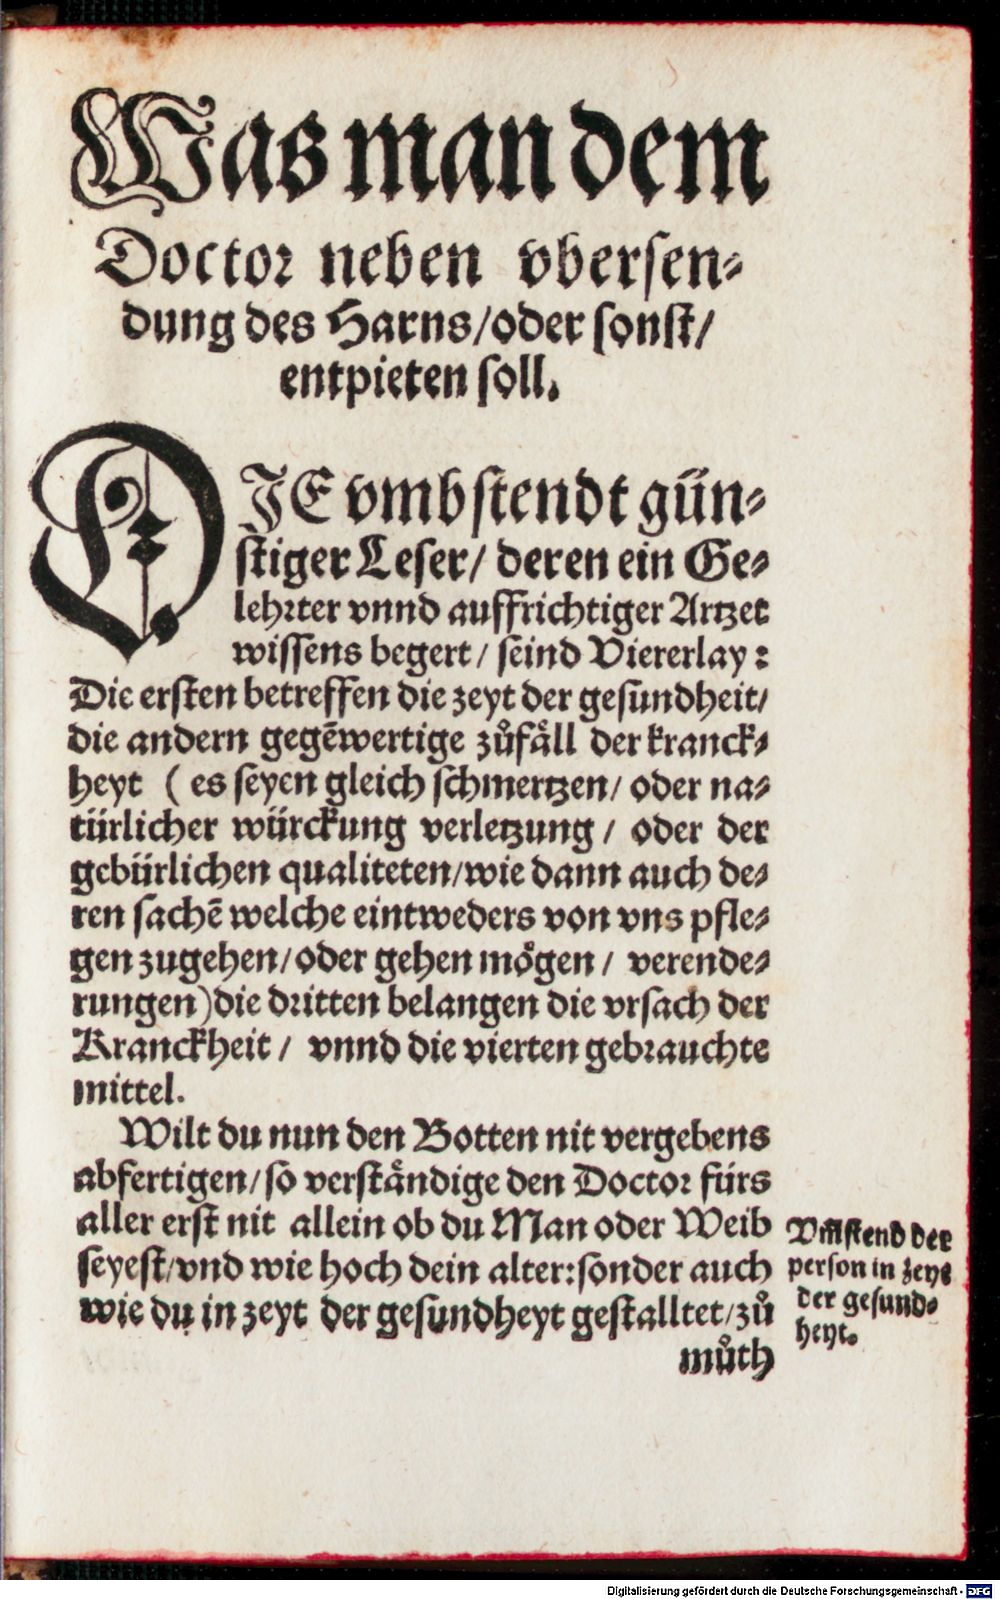 Was man dem
Doctor neben vbersen-
dung des Harns/oder sonst/
entpieten soll.
DIE vmbstendt gün-
stiger Leser/ deren ein Ge-
lehrter vnnd auffrichtiger Artzet
wissens begert/ seind Viererlay:
Die ersten betreffen die zeyt der gesundheit/
die andern gegẽwertige zůfäll der kranck-
heyt ( es seyen gleich schmertzen/ oder na-
türlicher würckung verletzung/ oder der
gebürlichen qualiteten/wie dann auch de-
ren sachẽ welche eintweders von vns pfle-
gen zugehen/oder gehen mögen/ verende-
rungen)die dritten belangen die vrsach der
Kranckheit/ vnnd die vierten gebrauchte
mittel.
Wilt du nun den Botten nit vergebens
abfertigen/so verständige den Doctor fürs
aller erst nit allein ob du Man oder Weib
seyest/vnd wie hoch dein alter:sonder auch
wie du in zeyt der gesundheyt gestalltet/zů
můth
Vm̃stend der
person in zeyt
der gesund-
heyt.
Digitalisierung gefördert durch die Deutsche Forschungsgemeinschaft - DFG